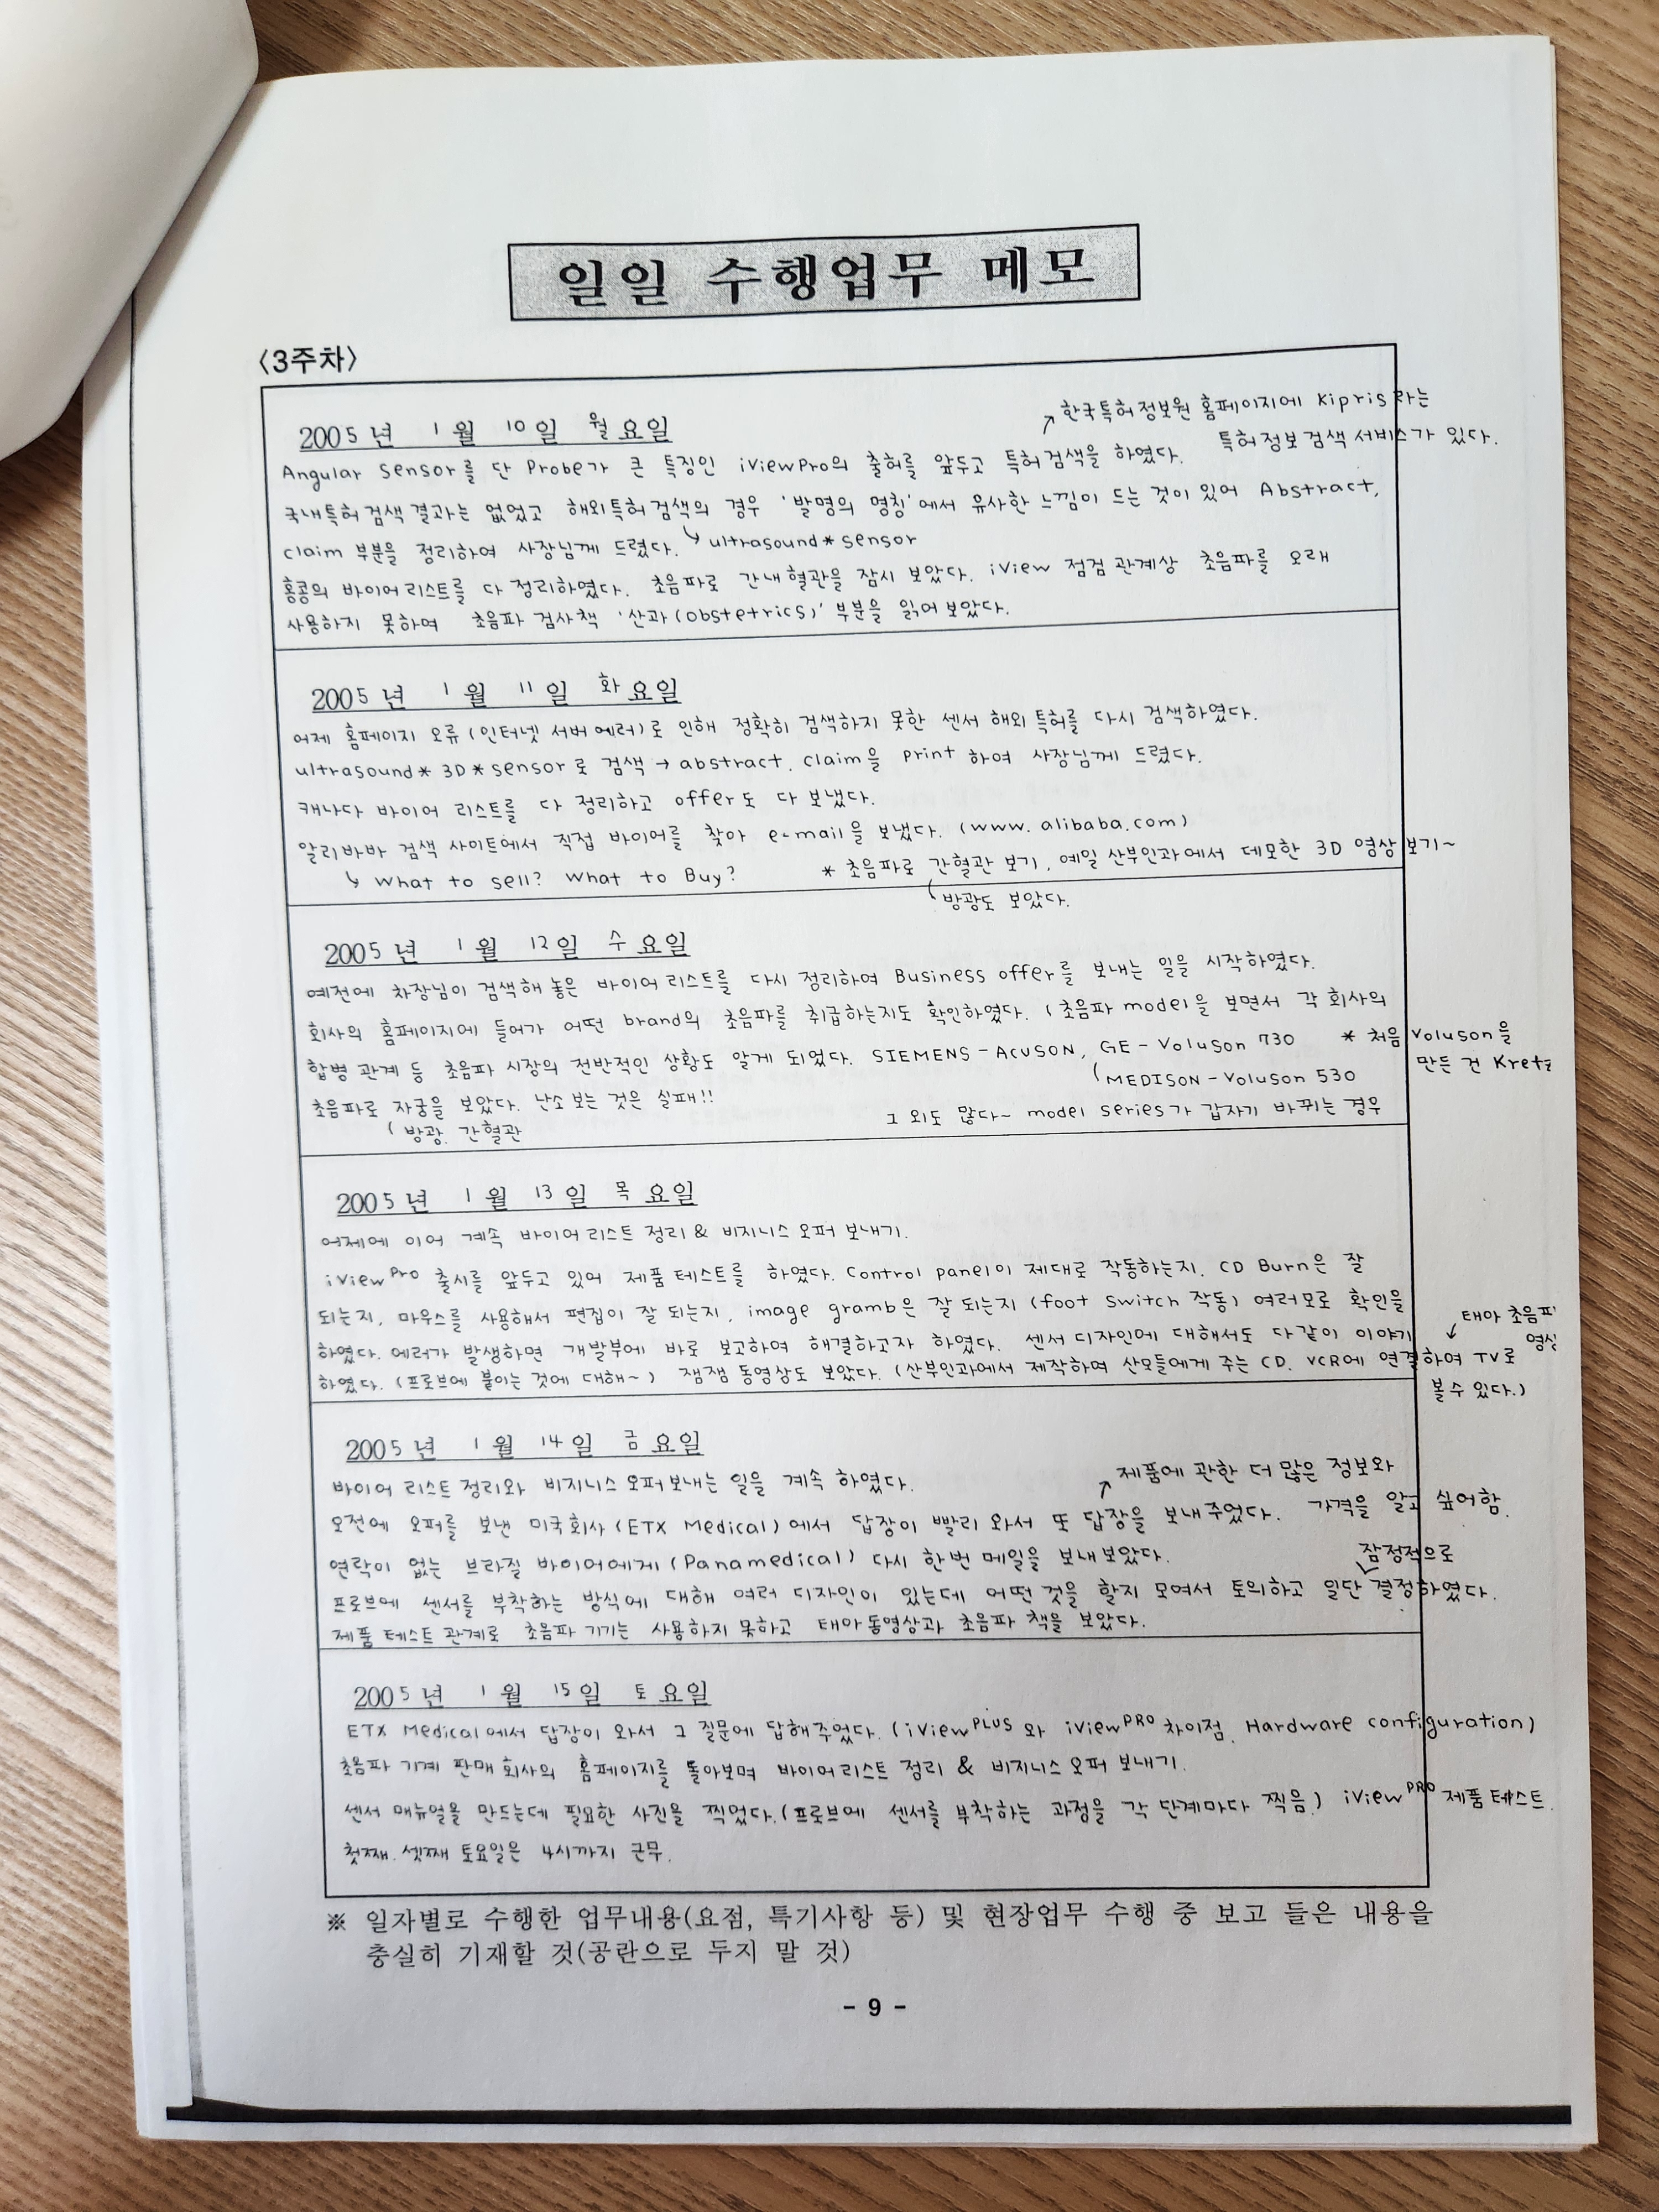 일일 수행업무 메모
<3주차>
2005년 1월 10일 월요일
↗한국특허정보원 홈페이지에 Kipris라는
특허정보검색 서비스가 있다.
Angular Sensor를 단 Probe가 큰 특징인 iViewPro의 출허를 앞두고 특허검색을 하였다.
국내특허검색결과는 없었고 해외특허검색의 경우 '발명의 명칭'에서 유사한 느낌이 드는 것이 있어 Abstract,
claim 부분을 정리하여 사장님께 드렸다. ↳ultrasound*sensor
홍콩의 바이어리스트를 다 정리하였다. 초음파로 간내혈관을 잠시 보았다. iView 점검관계상 초음파를 오래
사용하지 못하여 초음파 검사책 '산과(obstetrics)' 부분을 읽어보았다.
2005년 1월 11일 화요일
어제 홈페이지 오류(인터넷 서버에러)로 인해 정확히 검색하지 못한 센서 해외 특허를 다시 검색하였다.
ultrasound* 3D*sensor로 검색 → abstract, claim을 print 하여 사장님께 드렸다.
캐나다 바이어 리스트를 다 정리하고 offer도 다 보냈다.
알리바바 검색 사이트에서 직접 바이어를 찾아 e-mail을 보냈다. (www.alibaba.com)
↳ What to sell? What to Buy? * 초음파로 간혈관 보기, 예일 산부인과에서 데모한 3D 영상보기~
(방광도 보았다.
2005년 1월 12일 수요일
예전에 차장님이 검색해 놓은 바이어리스트를 다시 정리하여 Business offer를 보내는 일을 시작하였다.
회사의 홈페이지에 들어가 어떤 brand의 초음파를 취급하는지도 확인하였다. (초음파 model을 보면서 각 회사의
합병 관계 등 초음파 시장의 전반적인 상황도 알게 되었다. SIEMENS-ACUSON, GE-Voluson 730 * 처음 Voluson을
만든 건 Kretz
(MEDISON-Voluson 530
초음파로 자궁을 보았다. 난소 보는 것은 실패!!
그 외도 많다~ model series가 갑자기 바뀌는 경우
(방광, 간혈관
2005년 1월 13일 목요일
어제에 이어 계속 바이어리스트 정리 & 비지니스 오퍼 보내기.
iView Pro 출시를 앞두고 있어 제품테스트를 하였다. Control panel이 제대로 작동하는지, CD Burn은 잘
되는지, 마우스를 사용해서 편집이 잘 되는지, image gramb은 잘 되는지 (foot switch 작동) 여러모로 확인을
↙태아 초음파
영상
하였다. 에러가 발생하면 개발부에 바로 보고하여 해결하고자 하였다. 센서 디자인에 대해서도 다같이 이야기
하였다. (프로브에 붙이는 것에 대해~) 잼잼 동영상도 보았다. (산부인과에서 제작하며 산모들에게 주는 CD, VCR에 연결하여 TV로
볼수 있다.)
2005년 1월 14일 금요일
바이어 리스트 정리와 비지니스 오퍼보내는 일을 계속 하였다.
↗제품에 관한 더 많은 정보와
가격을 알고 싶어함.
오전에 오퍼를 보낸 미국회사(ETX Medical)에서 답장이 빨리 와서 또 답장을 보내주었다.
연락이 없는 브라질 바이어에게(Panamedical) 다시 한번 메일을 보내보았다.
잠정적으로
프로브에 센서를 부착하는 방식에 대해 여러 디자인이 있는데 어떤 것을 할지 모여서 토의하고 일단 결정하였다.
제품 테스트 관계로 초음파 기기는 사용하지 못하고 태아동영상과 초음파 책을 보았다.
2005년 1월 15일 토요일
ETX Medical에서 답장이 와서 그 질문에 답해주었다. (iView PLUS 와 iView PRO 차이점, Hardware configuration)
초음파 기계 판매회사의 홈페이지를 돌아보며 바이어리스트 정리 & 비지니스 오퍼 보내기.
센서 매뉴얼을 만드는데 필요한 사진을 찍었다.(프로브에 센서를 부착하는 과정을 각 단계마다 찍음.) iView PRO 제품 테스트.
첫째, 셋째 토요일은 4시까지 근무.
※ 일자별로 수행한 업무내용(요점, 특기사항 등) 및 현장업무 수행 중 보고 들은 내용을
충실히 기재할 것(공란으로 두지 말 것)
- 9 -